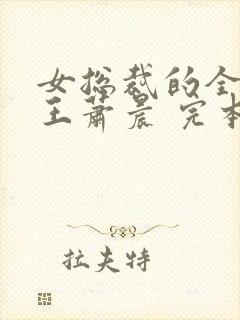 女总裁的全
王萧晨 完本
拉夫特